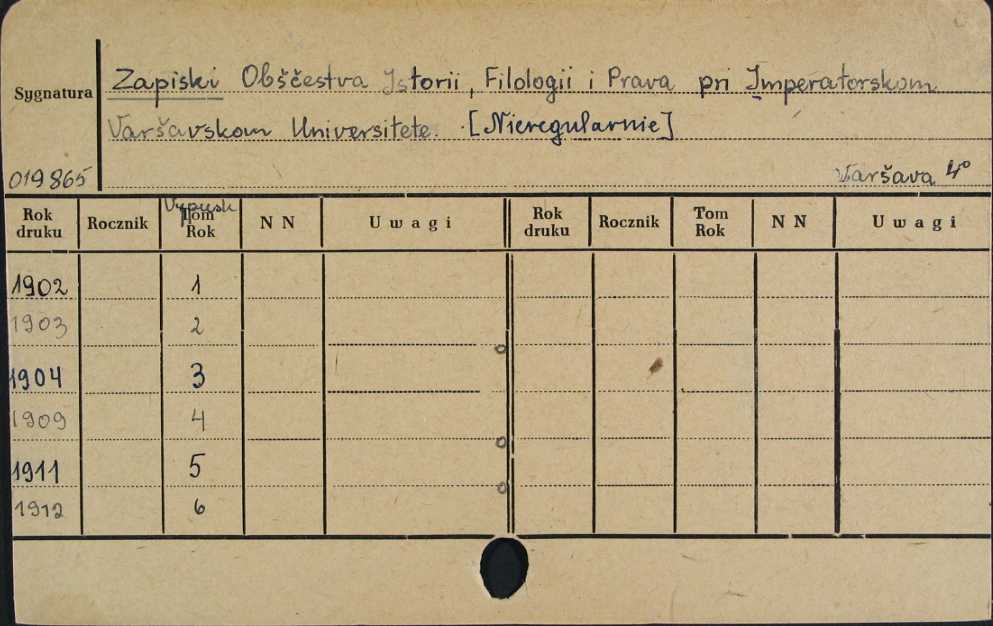 Zapiski Obščestva Istorii, Filologii i Prava pri Imperatorskom
Sygnatura
Varšavskom Universitete. [Nieregularnie]
019865
Varšava 4°
Rok druku Rocznik Vypusk Tom Rok N N Uwagi Rok druku Rocznik Tom Rok N N Uwagi
1902 1
1903 2
1904 3
1909 4
1911 5
1912 6